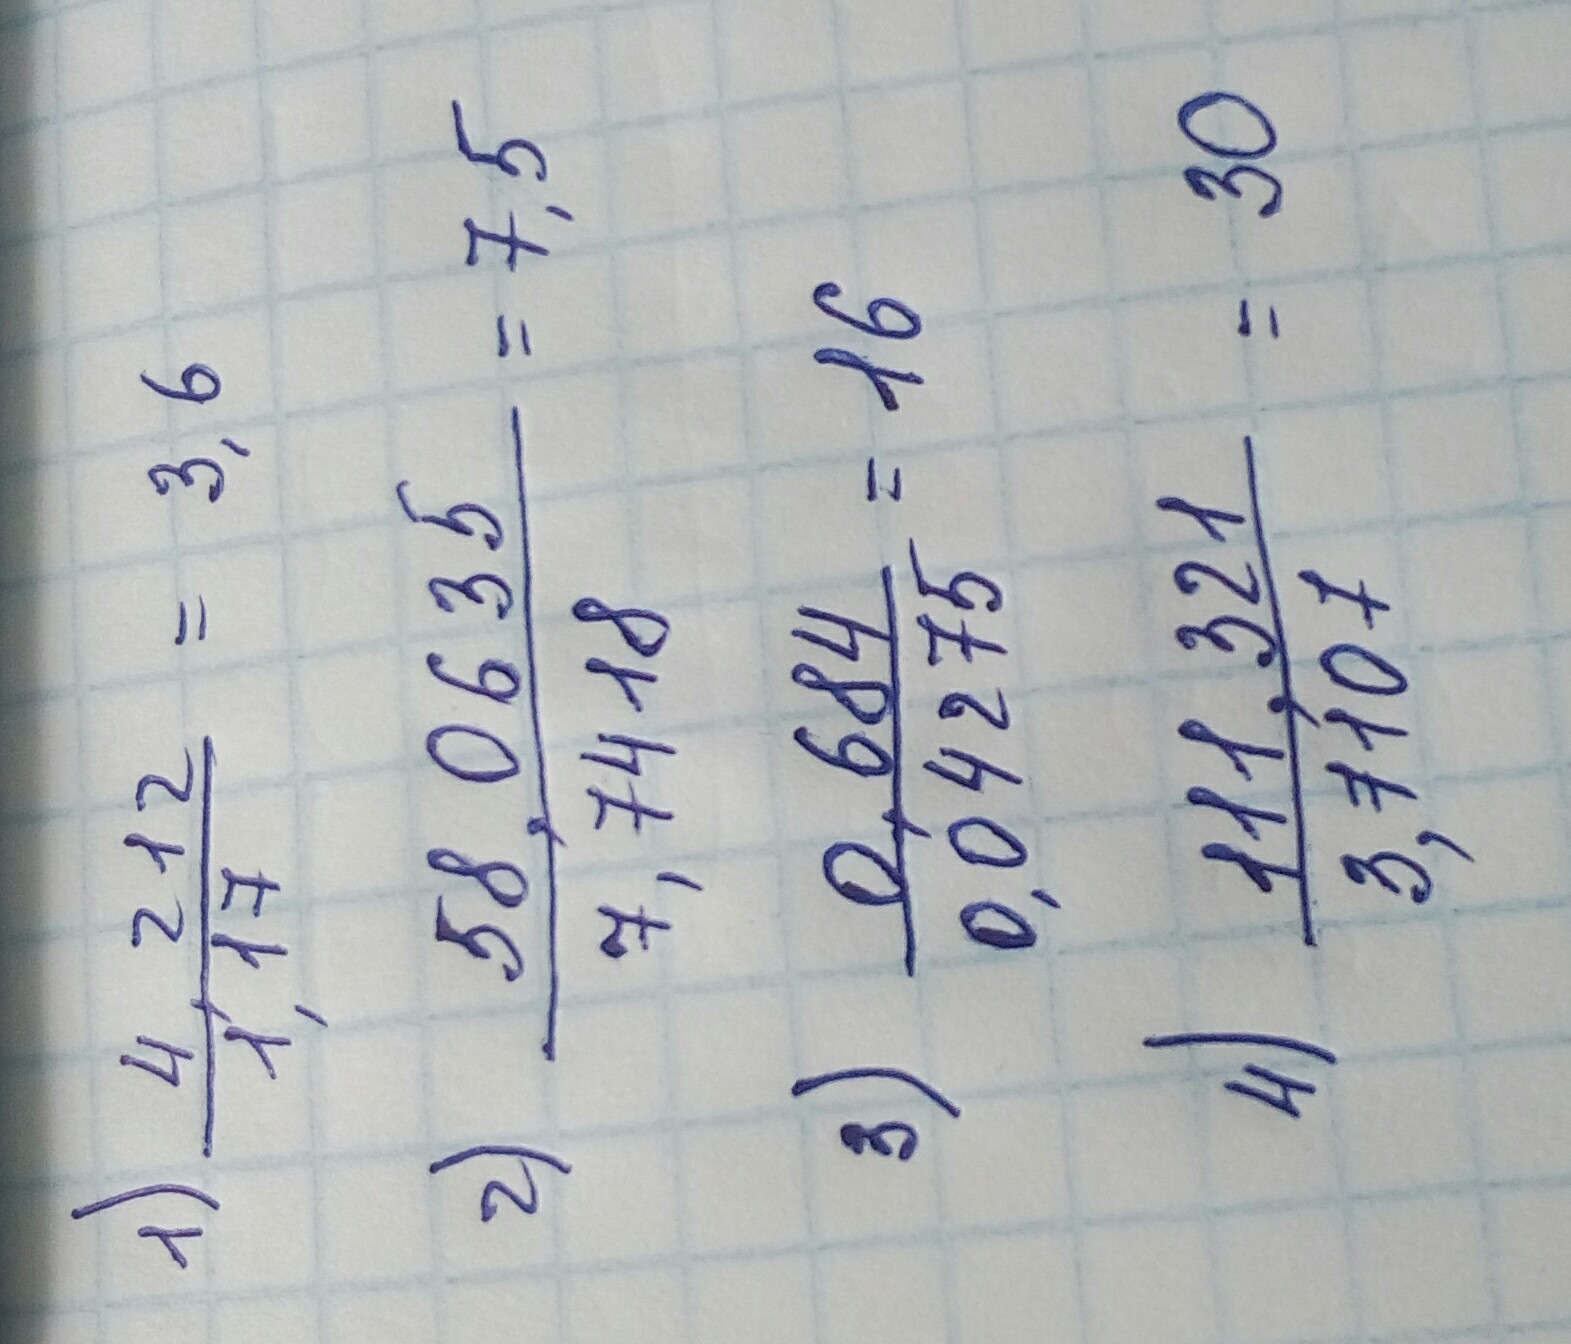 1) 4,212 / 1,17 = 3,6
2) 58,0635 / 7,7418 = 7,5
3) 0,684 / 0,04275 = 16
4) 111,321 / 3,7107 = 30